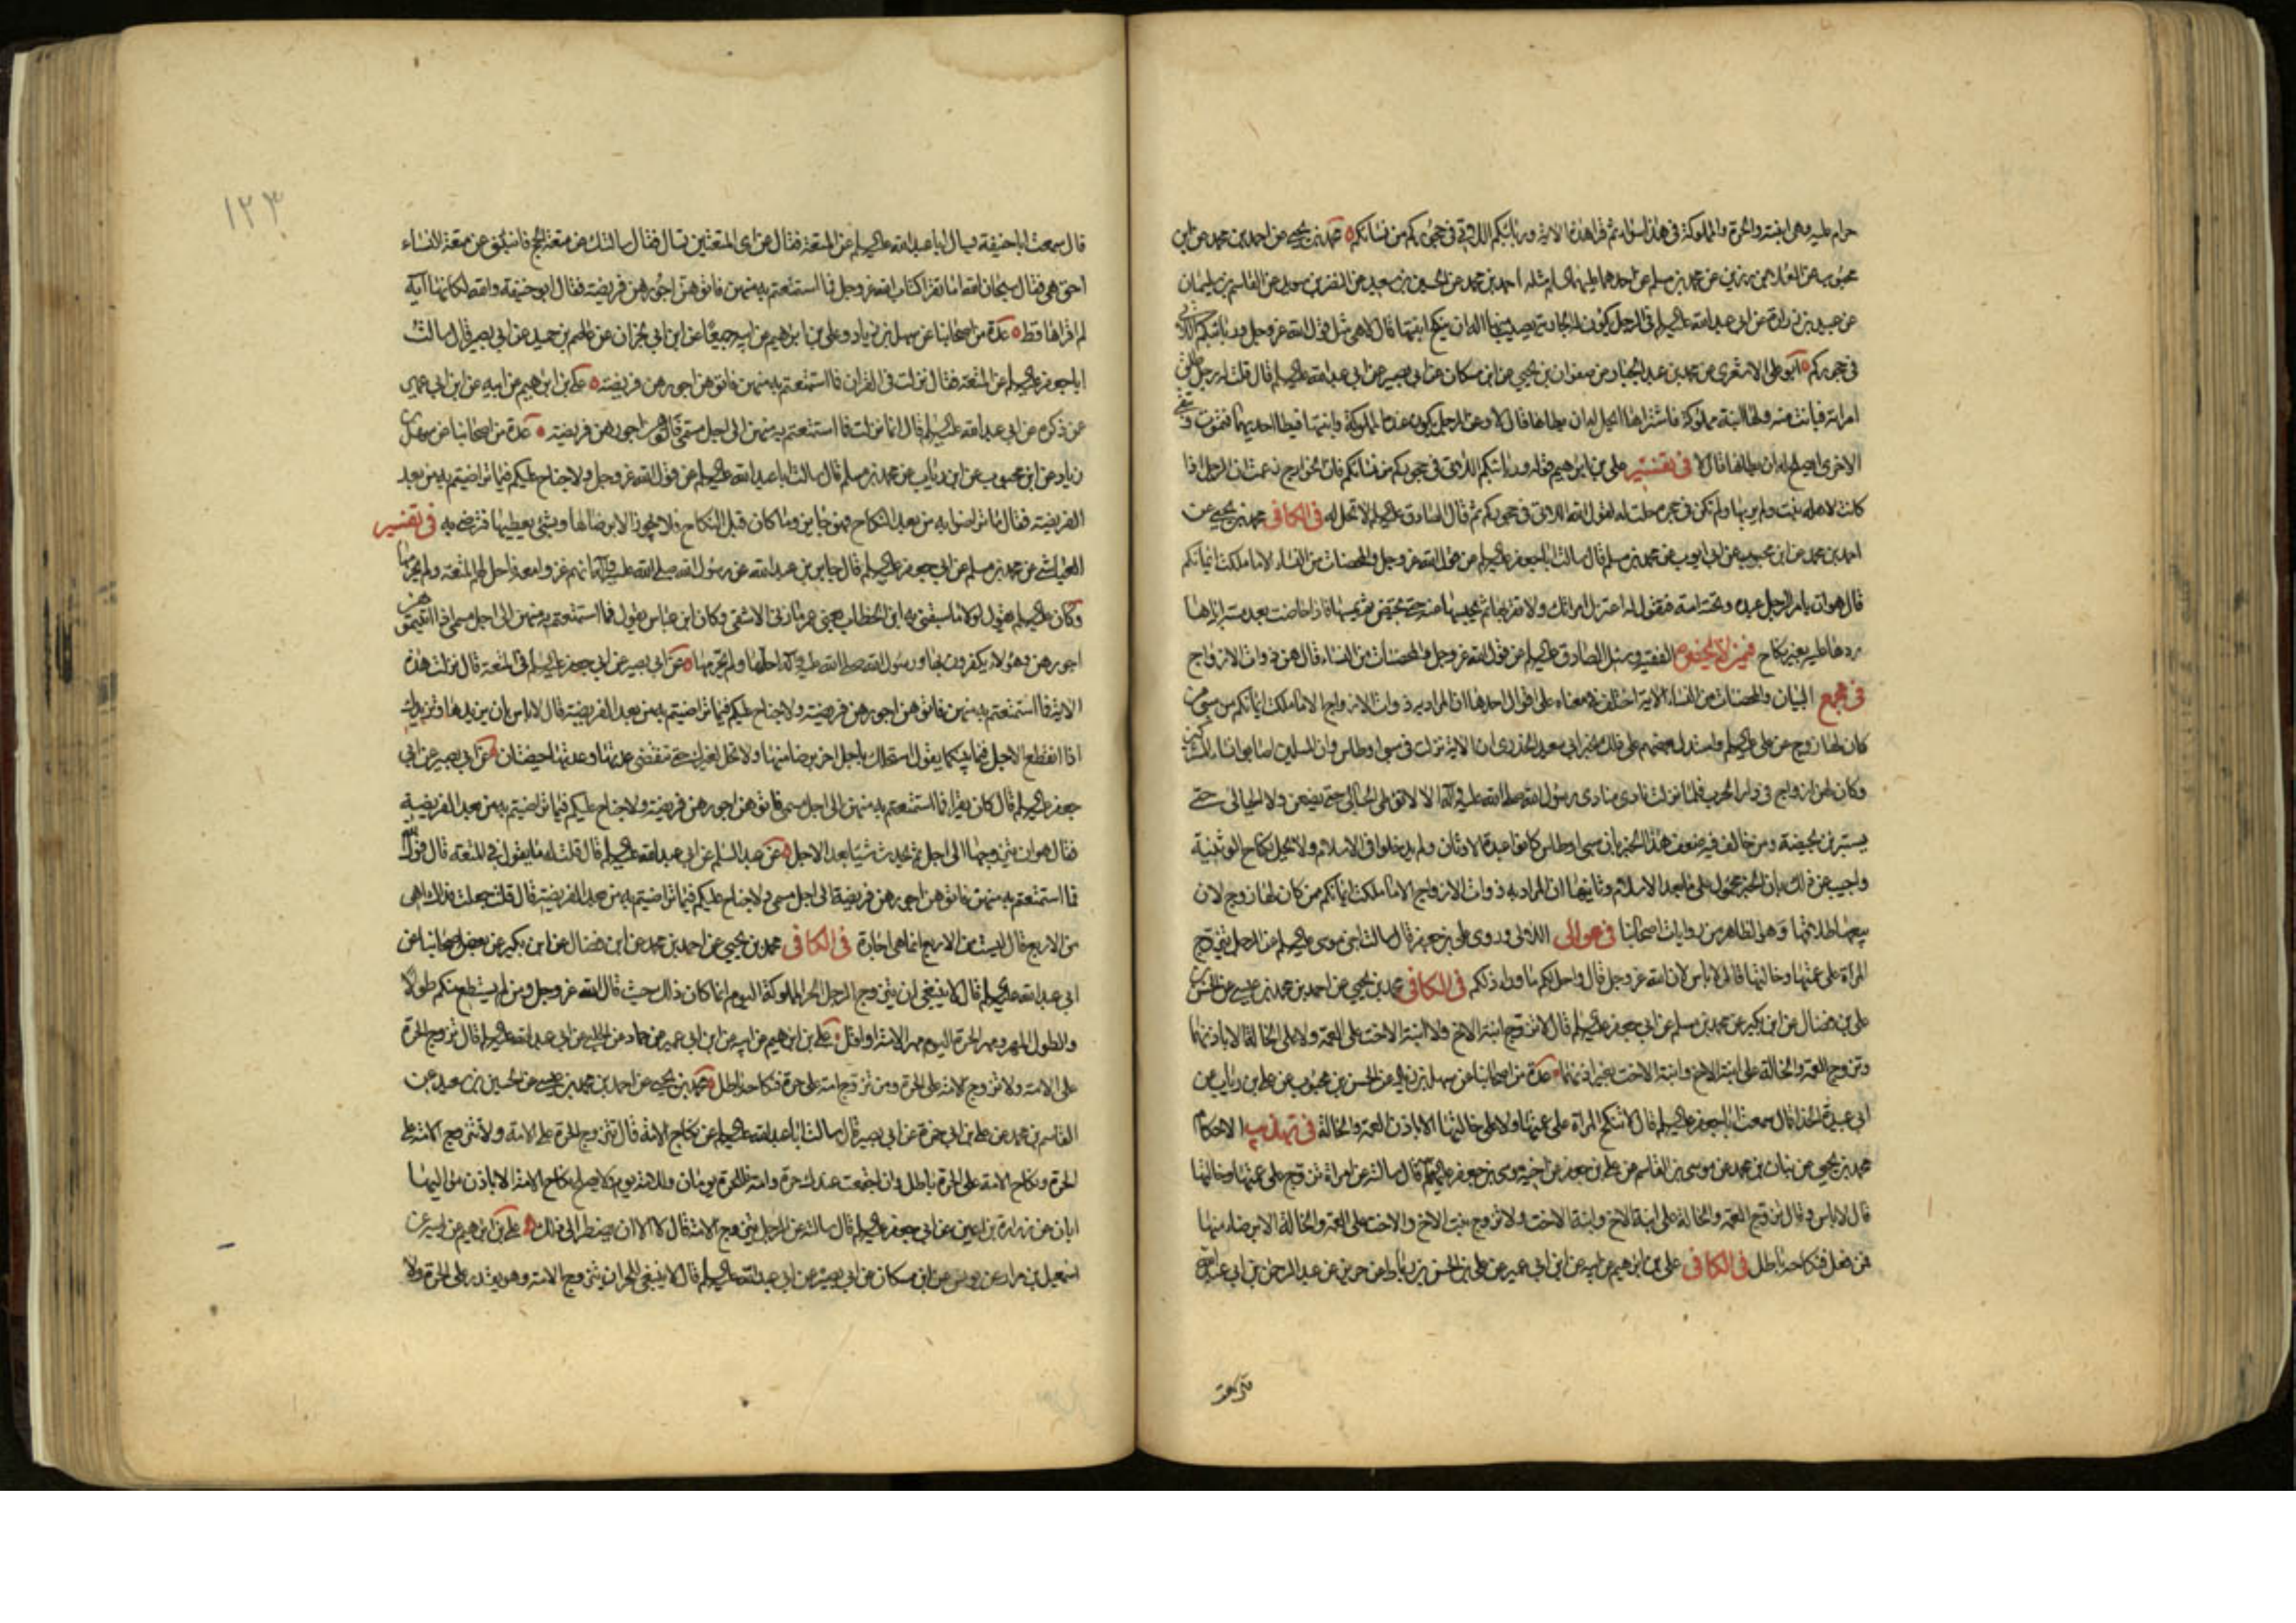 حرام عليه وهى ابنته والحرة والمملوكة فى هذا سواء ثم قرا هذه الاية وربائبكم اللاتى فى حجوركم من نسائكم محمد بن يحيى عن احمد بن محمد عن ابن
محبوب عن العلا بن رزين عن محمد بن مسلم عن احدهما عليهما السلم مثله احمد بن محمد عن الحسين بن سعيد عن النضر بن سويد عن القاسم بن سليمان
عن عبيد بن زرارة عن ابى عبد الله عليه السلم فى الرجل يكون له الجارية يصيب منها اله ان ينكح ابنتها قال لا هى مثل قول الله عز وجل وربائبكم اللاتى
فى حجوركم ابو على الاشعرى عن محمد بن عبد الجبار عن صفوان بن يحيى عن ابن مسكان عن ابى بصير عن ابى عبد الله عليه السلم قال قلت له رجل طلق
امراته فبانت منه ولها ابنة مملوكة فاشتراها ايحل له ان يطاها قال لا وعن الرجل يكون عنده المملوكة وابنتها فيطا احديهما فتموت وتبقى
الاخرى ايصلح له ان يطاها قال لا فى تفسير على بن ابراهيم قوله وربائبكم اللاتى فى حجوركم من نسائكم فان الخوارج زعمت ان الرجل اذا
كانت لاهله بنت ولم يربها ولم تكن فى حجره حلت له لقول الله اللاتى فى حجوركم ثم قال الصادق عليه السلم لا تحل له فى الكافى محمد بن يحيى عن
احمد بن محمد عن ابن محبوب عن ابى ايوب عن محمد بن مسلم قال سالت ابا جعفر عليه السلم عن قول الله عز وجل والمحصنات من النساء الا ما ملكت ايمانكم
قال هو ان يامر الرجل عبده وتحته امته فيقول له اعتزل امراتك ولا تقربها ثم يحبسها عنه حتى تحيض ثم يمسها فاذا حاضت بعد مسه اياها
ردها عليه بغير نكاح فى من لا يحضره الفقيه وسئل الصادق عليه السلم عن قول الله عز وجل والمحصنات من النساء قال هن ذوات الازواج
فى مجمع البيان والمحصنات من النساء الاية اختلف فى معناه على اقوال احدها ان المراد به ذوات الازواج الا ما ملكت ايمانكم من سبى من
كان لها زوج عن على عليه السلم واستدل بعضهم على ذلك بخبر ابى سعيد الخدرى ان الاية نزلت فى سبى اوطاس وان المسلمين اصابوا نساء المشركين
وكان لهن ازواج فى دار الحرب فلما نزلت نادى منادى رسول الله صلى الله عليه واله الا لا توطى الحبالى حتى يضعن ولا الحيالى حتى
يستبرئن بحيضة ومن خالف فيه ضعف هذا الخبر بان سبى اوطاس كانوا عبدة الاوثان ولم يدخلوا فى الاسلام ولا يحل نكاح الوثنية
واجيب عن ذلك بان الخبر محمول على ما بعد الاسلام وثانيها ان المراد به ذوات الازواج الا ما ملكت ايمانكم ممن كان لها زوج لان
بيعها طلاقها وهو الظاهر من روايات اصحابنا فى عوالى اللئالى وروى على بن جعفر قال سالت اخى موسى عليه السلم عن الرجل يتزوج
المراة على عمتها وخالتها قال لا باس لان الله عز وجل قال واحل لكم ما وراء ذلكم فى الكافى محمد بن يحيى عن احمد بن محمد بن عيسى عن الحسن بن
على بن فضال عن ابن بكير عن محمد بن مسلم عن ابى جعفر عليه السلم قال لا تتزوج ابنة الاخ ولا ابنة الاخت على العمة ولا على الخالة الا باذنهما
وتزوج العمة والخالة على ابنة الاخ وابنة الاخت بغير اذنهما عدة من اصحابنا عن سهل بن زياد عن الحسن بن محبوب عن على بن رئاب عن
ابى عبيدة الحذا قال سمعت ابا جعفر عليه السلم قال لا تنكح المراة على عمتها ولا على خالتها الا باذن العمة والخالة فى تهذيب الاحكام
محمد بن يحيى عن بنان بن محمد عن موسى بن القاسم عن على بن جعفر عن اخيه موسى بن جعفر عليهما السلم قال سالته عن امراة تزوج على عمتها وخالتها
قال لا باس وقال تزوج العمة والخالة على ابنة الاخ وابنة الاخت ولا تزوج بنت الاخ والاخت على العمة والخالة الا برضاء منهما
فمن فعل فنكاحه باطل فى الكافى على بن ابراهيم عن ابيه عن ابن ابى عمير عن على بن الحسن بن رباط عن حريز عن عبد الرحمن بن ابى عبد الله
١٢٣
قال سمعت ابا حنيفة يسال ابا عبد الله عليه السلم عن المتعة فقال عن اى المتعتين تسال فقال سالتك عن متعة الحج فانبئنى عن متعة النساء
احق هى فقال سبحان الله اما تقرا كتاب الله عز وجل فما استمتعتم به منهن فاتوهن اجورهن فريضة فقال ابو حنيفة والله لكانها آية
لم اقراها قط عدة من اصحابنا عن سهل بن زياد وعلى بن ابراهيم عن ابيه جميعا عن ابن ابى نجران عن عاصم بن حميد عن ابى بصير قال سالت
ابا جعفر عليه السلم عن المتعة فقال نزلت فى القران فما استمتعتم به منهن فاتوهن اجورهن فريضة على بن ابراهيم عن ابيه عن ابن ابى عمير
عن ذكره عن ابى عبد الله عليه السلم قال انما نزلت فما استمتعتم به منهن الى اجل مسمى فاتوهن اجورهن فريضة عدة من اصحابنا عن سهل بن
زياد عن ابن محبوب عن ابن رئاب عن محمد بن مسلم قال سالت ابا عبد الله عليه السلم عن قول الله عز وجل ولا جناح عليكم فيما تراضيتم به من بعد
الفريضة فقال ما تراضوا به من بعد النكاح فهو جايز وما كان قبل النكاح فلا يجوز الا برضاها وبشى يعطيها فترضى به فى تفسير
العياشى عن محمد بن مسلم عن ابى جعفر عليه السلم قال جابر بن عبد الله عن رسول الله صلى الله عليه واله انهم غزوا معه فاحل لهم المتعة ولم يحرمها
وكان على عليه السلم يقول لولا ما سبقنى به ابن الخطاب يعنى عمر ما زنى الا شقى وكان ابن عباس يقول فما استمتعتم به منهن الى اجل مسمى فاتوهن
اجورهن وهؤلاء يكفرون بها ورسول الله صلى الله عليه واله احلها ولم يحرمها عن ابى بصير عن ابى جعفر عليه السلم فى المتعة قال نزلت هذه
الاية فما استمتعتم به منهن فاتوهن اجورهن فريضة ولا جناح عليكم فيما تراضيتم به من بعد الفريضة قال لا باس بان يزيدها وتزيدك
اذا انقطع الاجل فيما بينكما يقول استحللتك باجل اخر برضا منها ولا تحل لغيرك حتى تنقضى عدتها وعدتها حيضتان عن ابى بصير عن ابى
جعفر عليه السلم قال كان يقرا فما استمتعتم به منهن الى اجل مسمى فاتوهن اجورهن فريضة ولا جناح عليكم فيما تراضيتم به من بعد الفريضة
فقال هو ان يتزوجها الى اجل ثم يحدث شيئا بعد الاجل عن عبد السلم عن ابى عبد الله عليه السلم قال قلت له ما تقول فى المتعة قال قول الله
فما استمتعتم به منهن فاتوهن اجورهن فريضة الى اجل مسمى ولا جناح عليكم فيما تراضيتم به من بعد الفريضة قال قلت جعلت فداك اهى
من الاربع قال ليست من الاربع انما هى اجارة فى الكافى محمد بن يحيى عن احمد بن محمد عن ابن فضال عن ابن بكير عن بعض اصحابنا عن
ابى عبد الله عليه السلم قال لا ينبغى ان يتزوج الرجل الحر المملوكة اليوم انما كان ذلك حيث قال الله عز وجل ومن لم يستطع منكم طولا
والطول المهر ومهر الحرة اليوم مهر الامة او اقل على بن ابراهيم عن ابيه عن ابن ابى عمير عن حماد عن الحلبى عن ابى عبد الله عليه السلم قال تزوج الحرة
على الامة ولا تزوج الامة على الحرة ومن تزوج امة على حرة فنكاحه باطل محمد بن يحيى عن احمد بن محمد بن عيسى عن الحسين بن سعيد عن
القاسم بن محمد عن على بن ابى حمزة عن ابى بصير قال سالت ابا عبد الله عليه السلم عن نكاح الامة قال تتزوج الحرة على الامة ولا تتزوج الامة على
الحرة ونكاح الامة على الحرة باطل وان اجتمعت عندك حرة وامة فللحرة يومان وللامة يوم ولا يصلح نكاح الامة الا باذن مواليها
ابان عن زرارة بن اعين عن ابى جعفر عليه السلم قال سالته عن الرجل يتزوج الامة قال لا الا ان يضطر الى ذلك على بن ابراهيم عن ابيه عن
اسمعيل بن مرار عن يونس عن ابن مسكان عن ابى بصير عن ابى عبد الله عليه السلم قال لا ينبغى للحر ان يتزوج الامة وهو يقدر على الحرة ولا